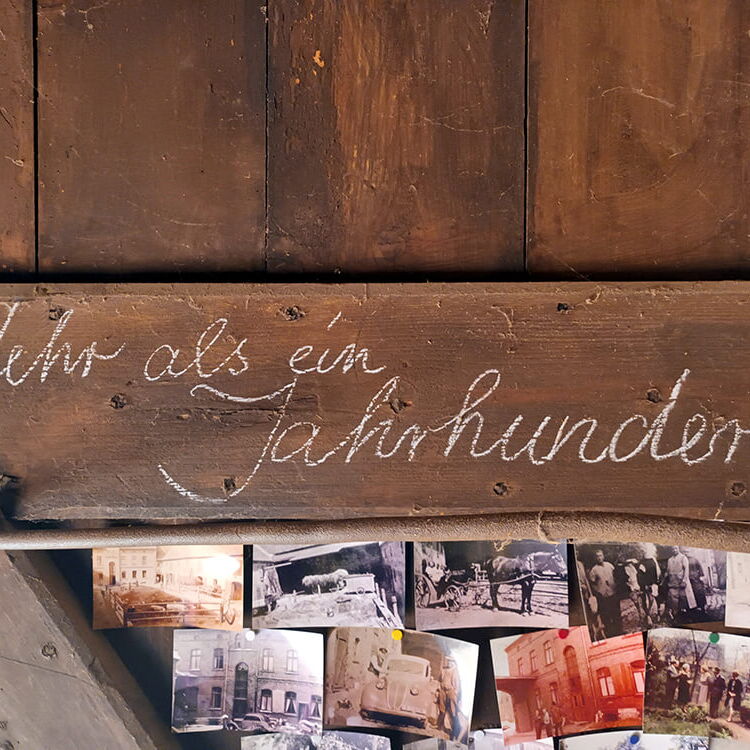 Mehr als ein
Jahrhunder